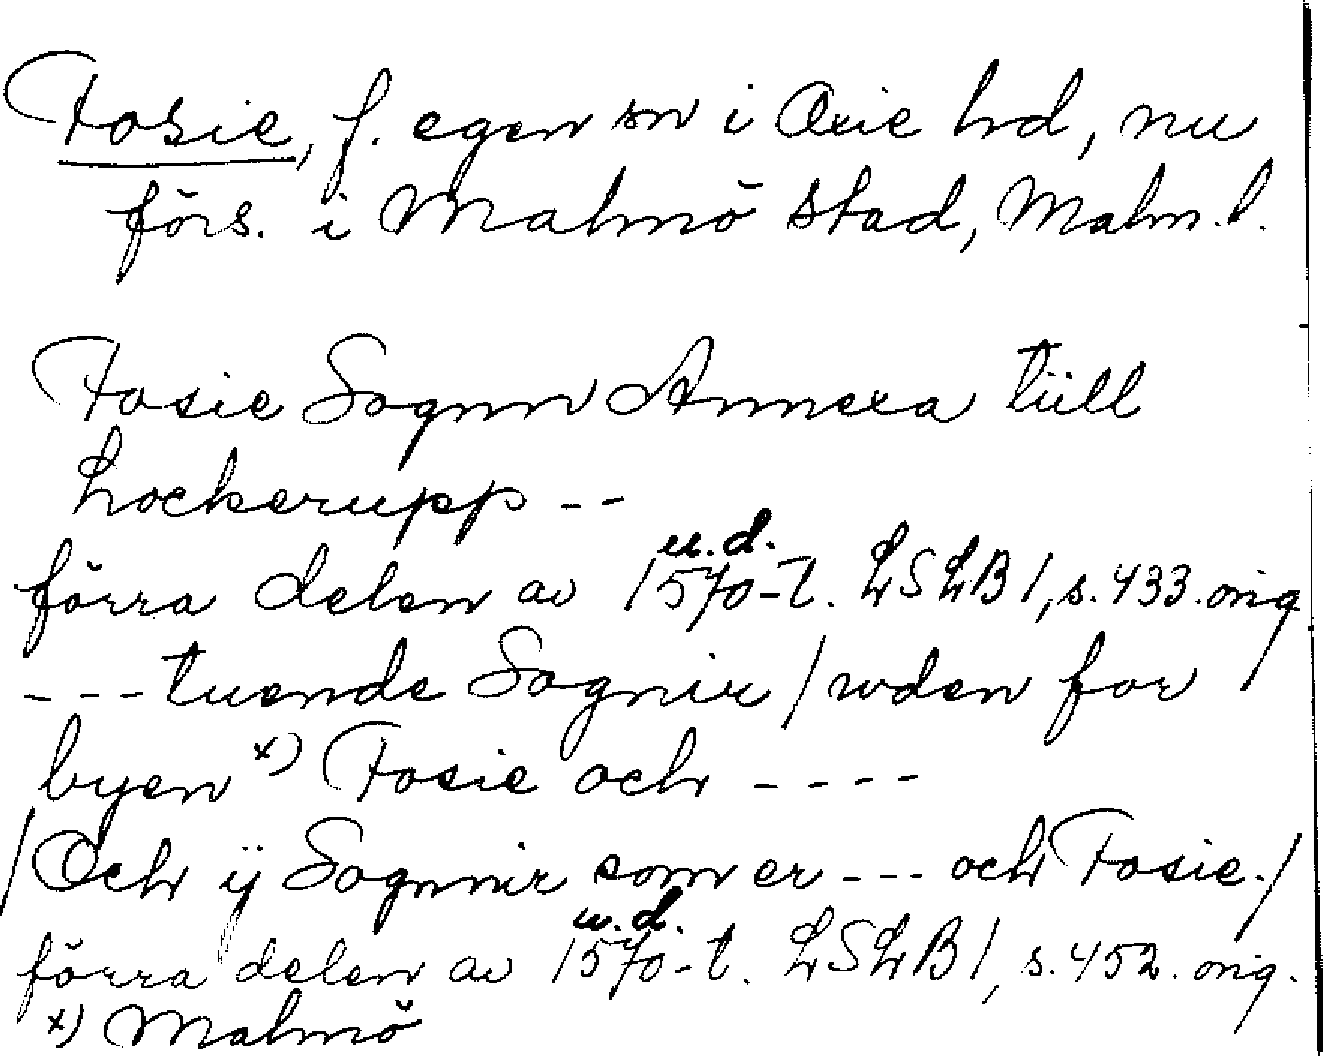 Fosie, f. egen sn i Oxie hd, nu
förs. i Malmö stad, Malm.l.
Fosie Sognn Annexa tüll
Lockerupp --
u.d.
förra delen av 1570-t. LSLB 1, s. 433. orig
--- tuende Sognir / wden for
byen x) Fosie och ----
/Och ÿ Sognnir som er --- och Fosie./
u.d.
förra delen av 1570-t. LSLB 1, s. 452. orig.
x) Malmö